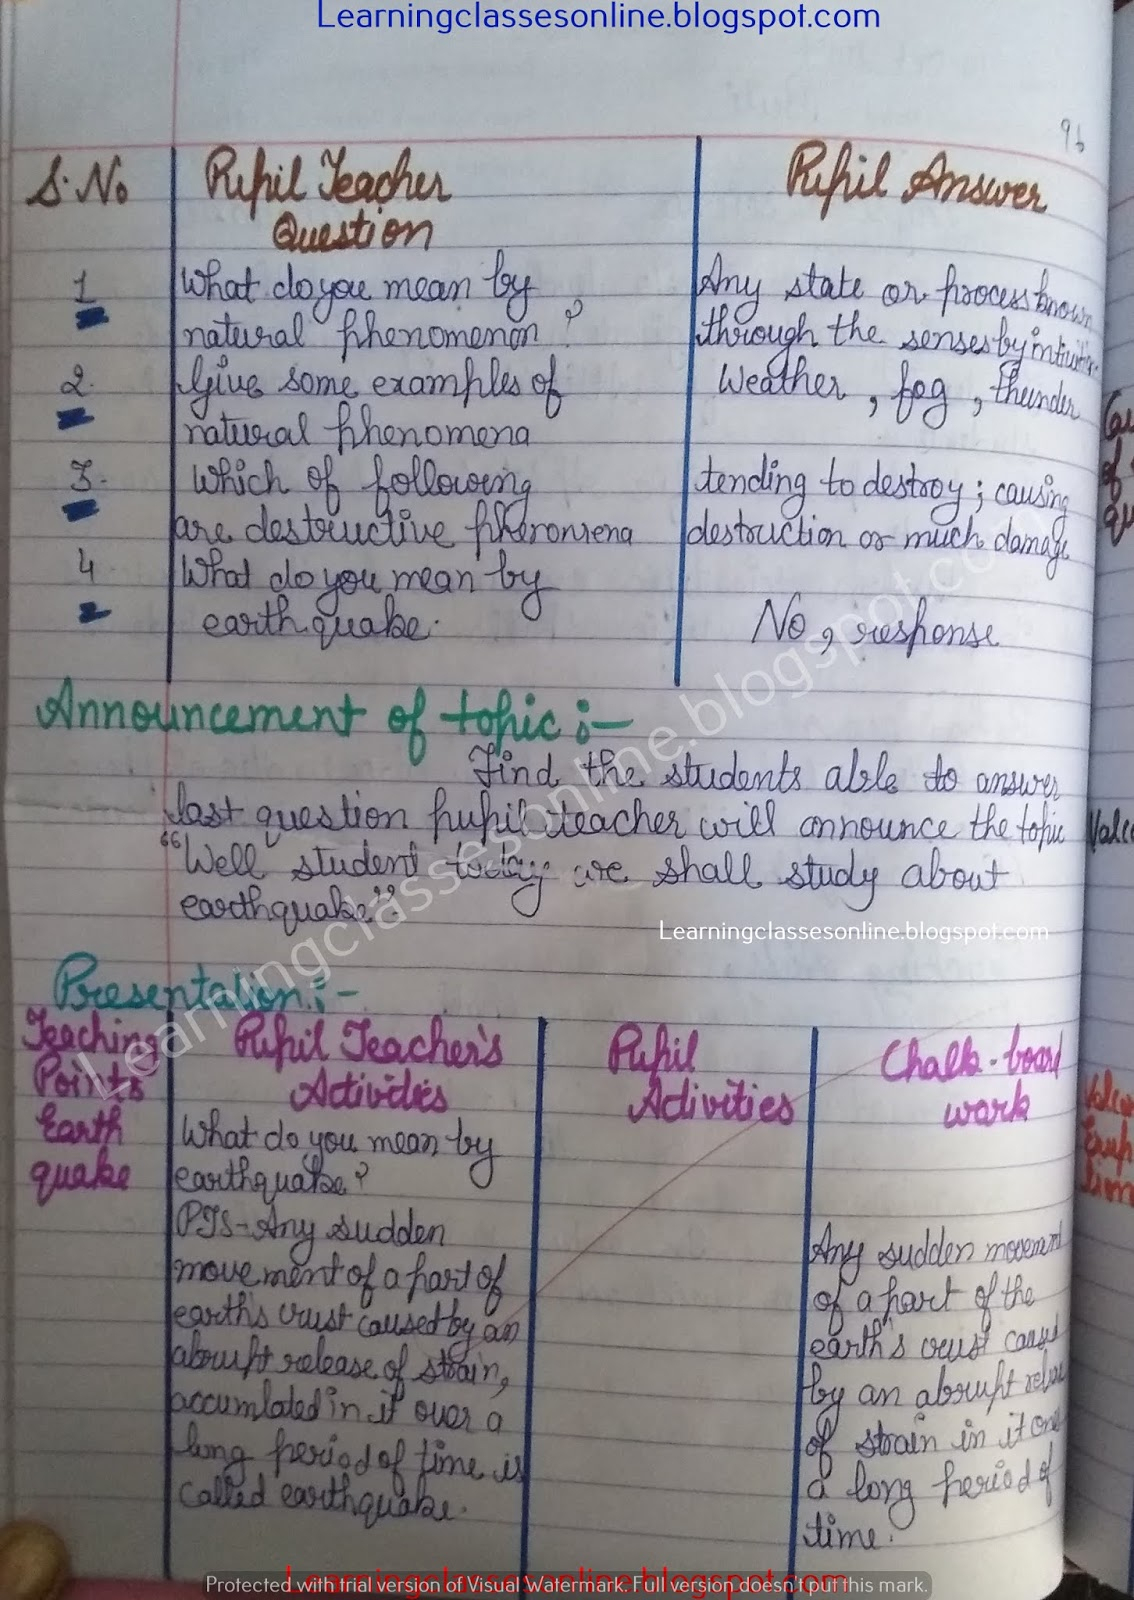 Learningclassesonline.blogspot.com
96
S.No Pupil Teacher Question Pupil Answer
1 What do you mean by Any state or process known
natural phenomenon? through the senses by intuition.
2. Give some examples of Weather, fog, thunder
natural phenomena
3. Which of following tending to destroy; causing
are destructive phenomena destruction or much damage
4 What do you mean by
earthquake. No, response
Announcement of topic :-
Find the students able to answer
last question pupil teacher will announce the topic
"Well student today we shall study about
earthquake".
Learningclassesonline.blogspot.com
Learningclassesonline.blogspot.com
Presentation :-
Teaching Points
Pupil Teacher's Activities
Pupil Activities
Chalk-board work
Earth
quake
What do you mean by
earthquake?
PTS - Any sudden
movement of a part of
earth's crust caused by an
abrupt release of strain,
accumlated in it over a
long period of time is
called earthquake.
Any sudden movement
of a part of the
earth's crust caused
by an abrupt release
of strain in it over
a long period of
time.
Learningclassesonline.blogspot.com
Protected with trial version of Visual Watermark. Full version doesn't put this mark.